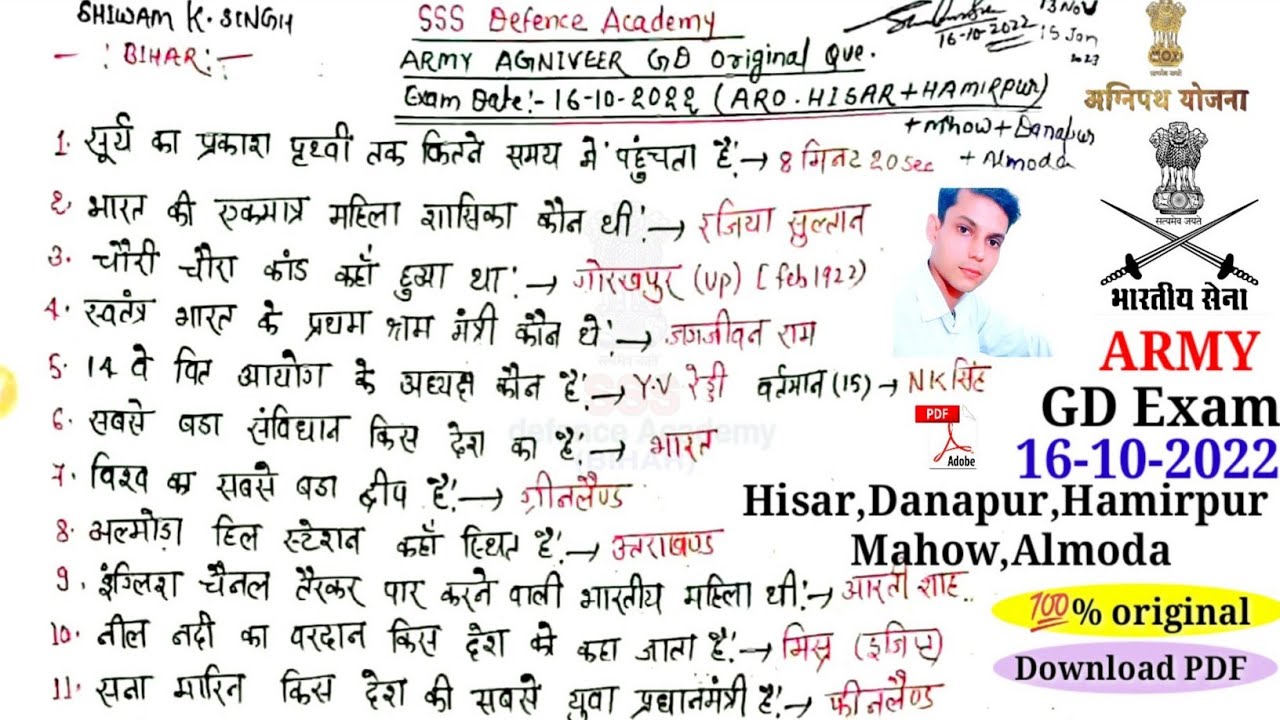 SHIWAM K. SINGH
- : BIHAR: -
SSS Defence Academy
ARMY AGNIVEER GD Original Que.
Exam Date:- 16-10-2022 (ARO. HISAR + HAMIRPUR)
+ Mhow + Danapur
+ Almoda
16-10-2022
13 Nov
15 Jan
2023
अग्निपथ योजना
1. सूर्य का प्रकाश पृथ्वी तक कितने समय में पहुंचता है → 8 मिनट 20 sec
2. भारत की एकमात्र महिला शासिका कौन थी → रजिया सुल्तान
3. चौरी चौरा कांड कहाँ हुआ था → गोरखपुर (UP) [feb 1922)
4. स्वतंत्र भारत के प्रथम श्रम मंत्री कौन थे → जगजीवन राम
5. 14 वे वित आयोग के अध्यक्ष कौन है → Y.V रेड्डी वर्तमान (15) → NK सिंह
6. सबसे बडा संविधान किस देश का है → भारत
7. विश्व का सबसे बडा द्वीप है → ग्रीनलैण्ड
8. अल्मोड़ा हिल स्टेशन कहाँ स्थित है → उत्तराखण्ड
9. इंग्लिश चैनल तैरकर पार करने वाली भारतीय महिला थी → आरती शाह..
10. नील नदी का वरदान किस देश को कहा जाता है → मिस्र (इजिप्ट)
11. सना मारिन किस देश की सबसे युवा प्रधानमंत्री है → फीनलैण्ड
सत्यमेव जयते
भारतीय सेना
ARMY
GD Exam
16-10-2022
Hisar,Danapur,Hamirpur
Mahow,Almoda
PDF
Adobe
💯% original
Download PDF
SSS
defence Academy
(BIHAR)